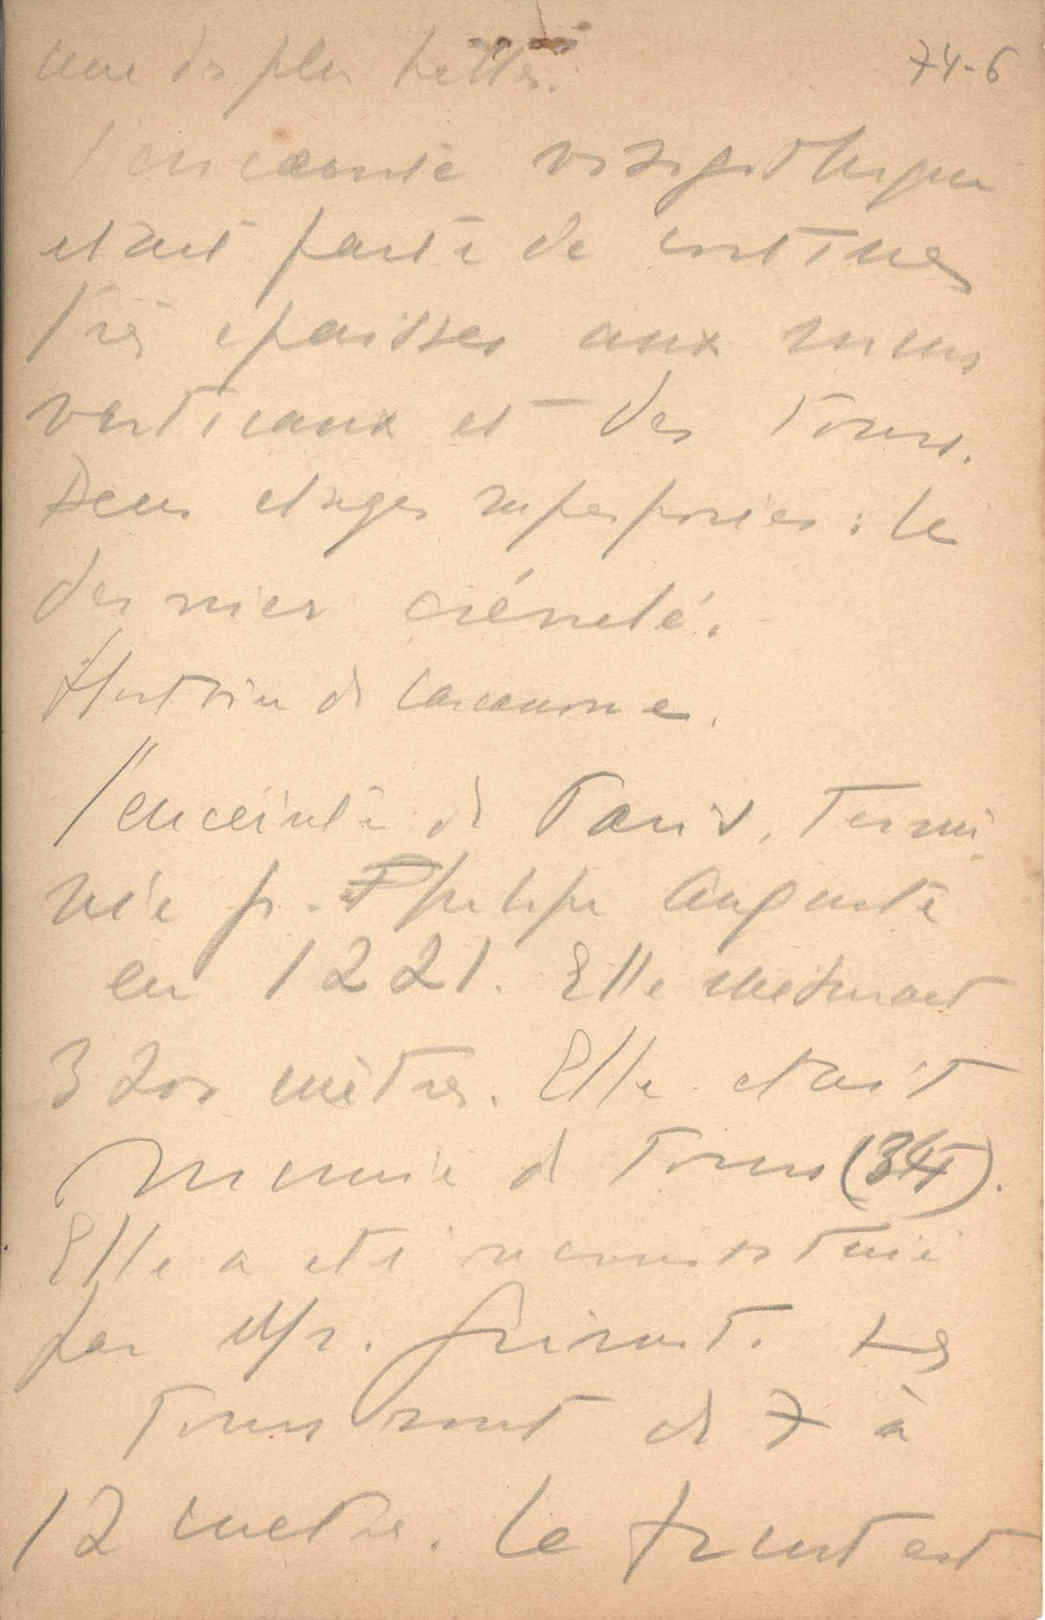 74-6
une des plus belles.
l'enceinte visigothique
etait faite de cortines
très epaisses aux murs
verticaux et des tours.
Deux etages superposées : le
dernier crénelé.
Histoire de Carcassonne.
l'enceinte de Paris, termi
née p. Philippe Auguste
en 1221. Elle mesurait
3200 mètres. Elle etait
munie de tours (34).
Elle a eté reconstituée
par Mr. Guirout. Les
tours sont de 7 à
12 metres. Le front est